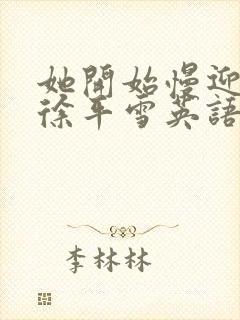 她開始慢迎
徐平雪英語
李林林